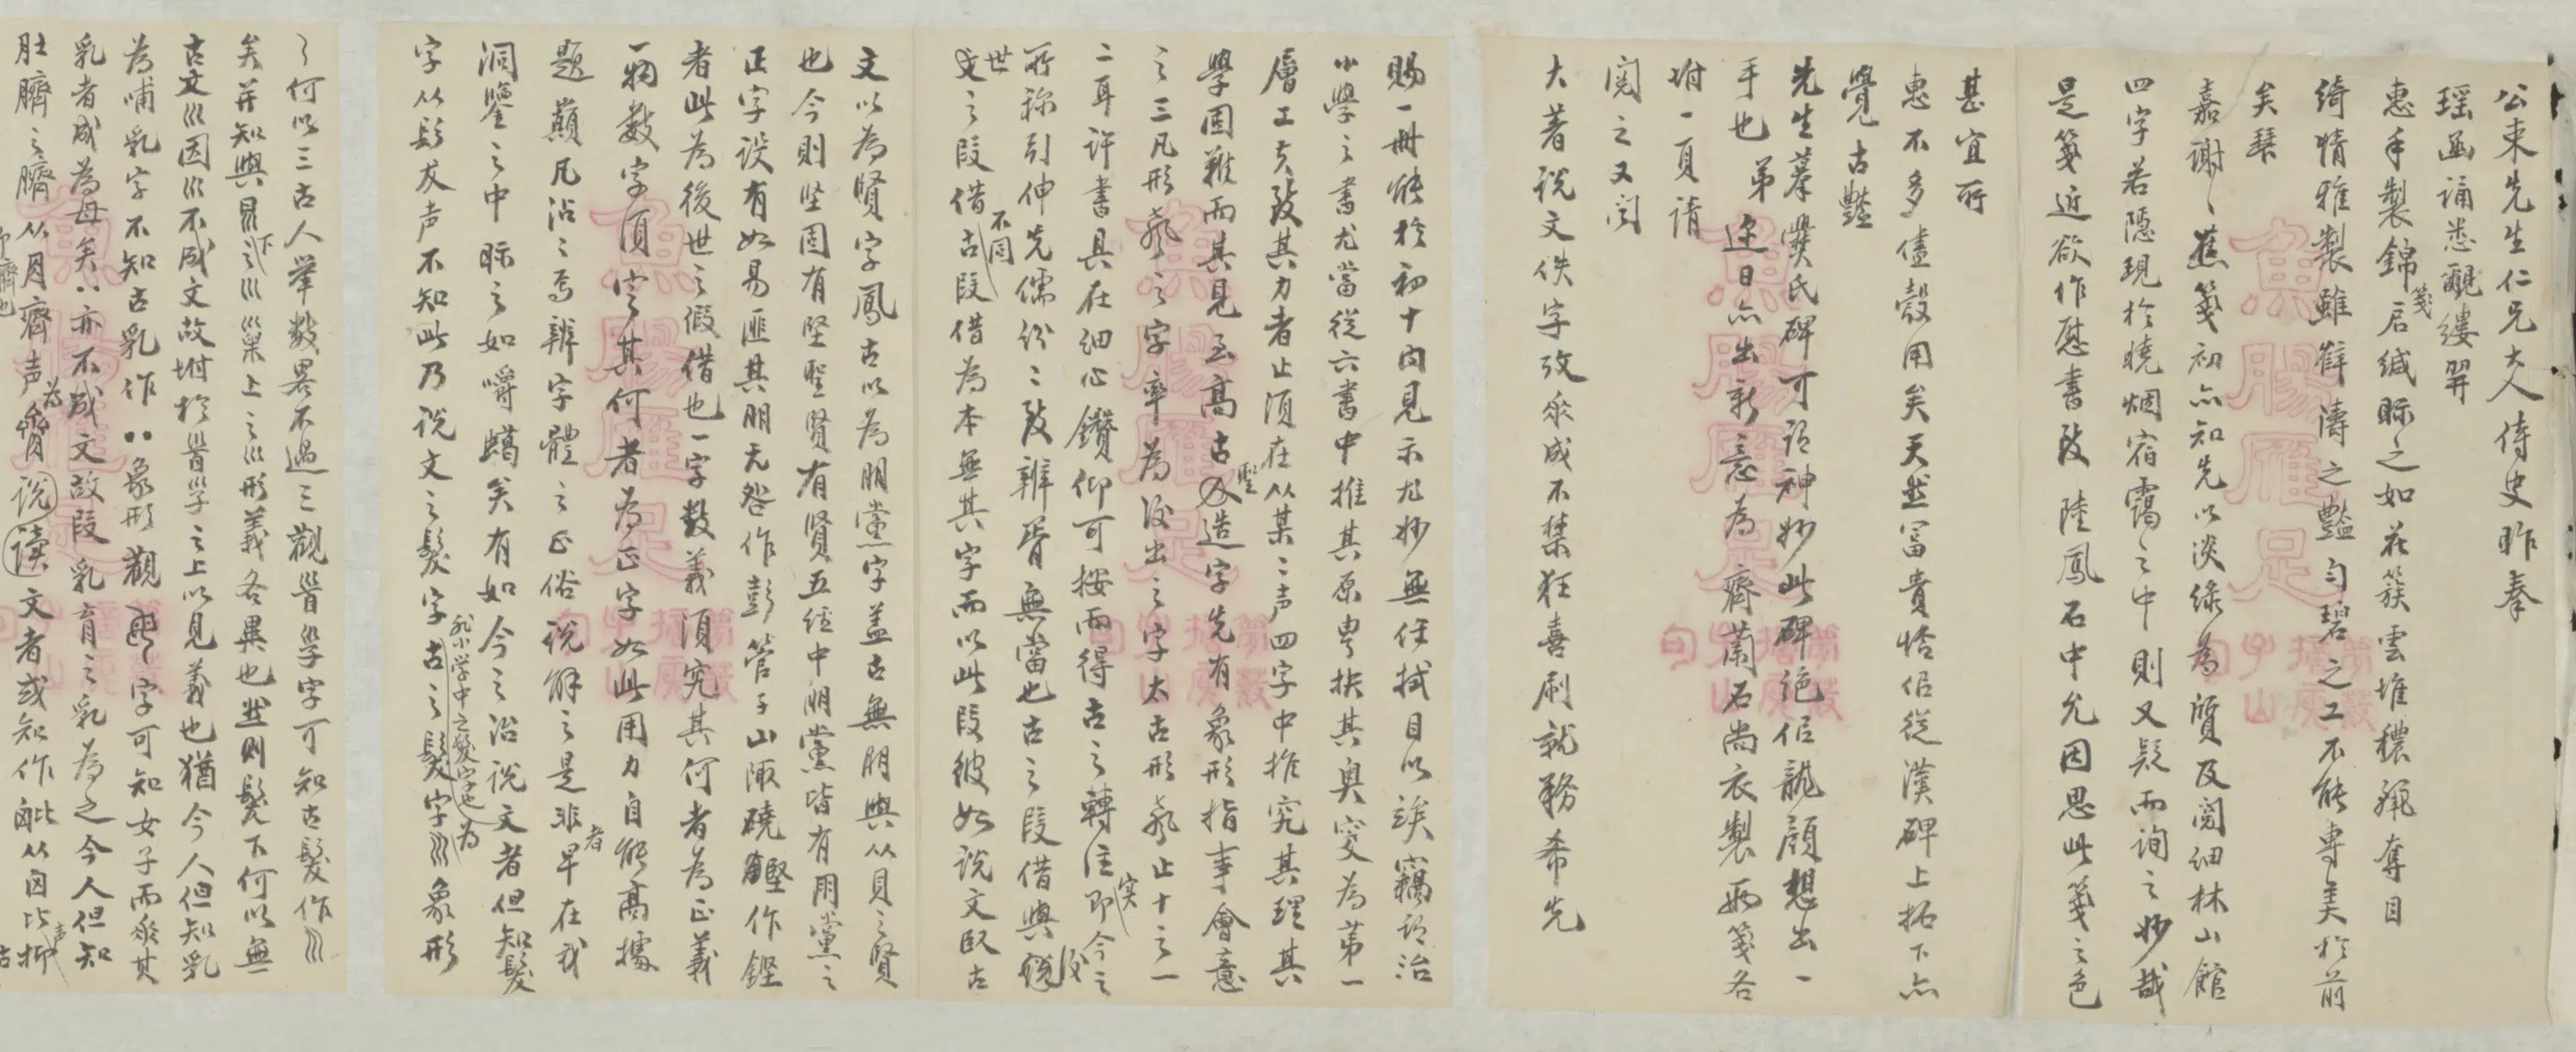 公束先生仁兄大人侍史昨奉
瑶函誦悉覼縷羿
惠手製錦箋启緘眎之如花簇雲堆穠豔奪目
綺情雅製雖薛濤之豔勻碧之工不能專美於前
矣琹
嘉謝〻蕉箋初亦知先以淡綠為質及閱細林山館
四字若隱現於曉烟宿靄之中則又疑而詢之妙哉
是箋近欲作慰書致 陸鳳石中允因思此箋之色
甚宜所
惠不多儘彀用矣天然富貴恰侣從漢碑上拓下亦
覺古豔
先生摹爨氏碑可謂神妙此碑絕侣龍顏想出一
手也 弟迩日亦出新意為 齊蘭石尚衣製兩箋各
坿一頁請
閱之又閱
大著說文佚字攷亦成不禁狂喜刷就務希先
賜一冊能於初十內見示尤妙無任拭目以竢竊謂治
小學之書尤當從六書中推其原抉其奧窔為第一
層工夫致其力者止須在从某〻声四字中推究其理其
學固難而其見至高古聖造字先有象形指事會意
之三凡形声之字率為後出之字太古形声止十之一
二耳許書具在細心鑽仰可按而得古之轉注即今之
所称引伸先儒紛〻致辨胥無當也古之叚借與後
世之叚借不同古叚借為本無其字而以此叚彼如說文臤古
文以為賢字鳳古以為朋黨字蓋古無朋與从貝之賢
也今則坚固有坚聖賢有賢五经中朋黨皆有朋黨之
正字设有如易匪其朋无咎作彭管子山陬磽鏗作鏗
者此為後世之假借也一字數義須究其何者為正義
一物數字須究其何者為正字如此用力自能高據
題巔凡沾〻焉辨字體之正俗说解之是非者早在我
洞鑒之中眎之如嚼蠟矣有如今之治说文者但知髮
字从髟犮声不知此乃说文之髮字 於小学中之髮字也古之髮字為巛象形
〻何以三古人举數畧不過三觀𩠐𡿺字可知古髮作巛
矣并知與㫐下之巛巢上之巛形義各異也然则髮下何以無
古文巛因巛不成文故坿於𩠐𡿺之上以見義也猶今人但知乳
為哺乳字不知古乳作‥象形觀母字可知女子而象其
乳者成為母矣‥亦不成文故叚乳育之乳為之今人但知
肚臍之臍从月齊声為𦝫说读文者或知作毗从囟比声抑